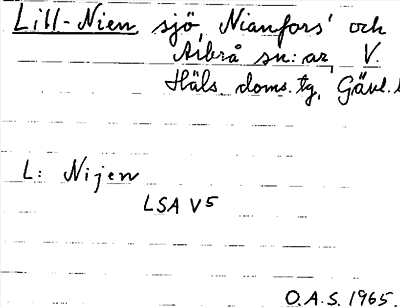 Lill-Nien sjö, Nianfors' och
Arbrå sn:ar, V.
Häls. doms. tg, Gävl. l
L: Nijen
LSA V5
O.A.S. 1965.